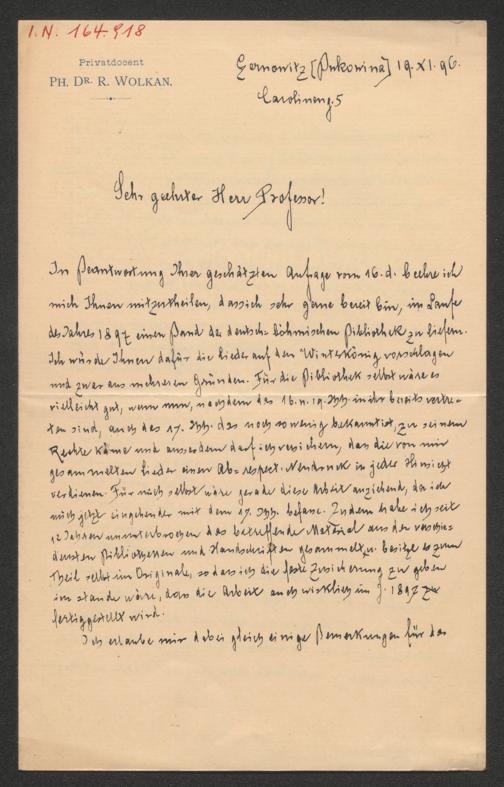 I.N. 164.918
Privatdocent
PH. DR. R. WOLKAN.
Czernowitz [Bukowina] 19.XI.96.
Carolineng. 5
Sehr geehrter Herr Professor!
In Beantwortung Ihrer geschätzten Anfrage vom 16. d. beehre ich
mich Ihnen mitzutheilen, dass ich sehr gerne bereit bin, im Laufe
des Jahres 1897 einen Band der deutsch-böhmischen Bibliothek zu liefern.
Ich würde Ihnen dafür die Lieder auf den Winterkönig vorschlagen
und zwar aus mehreren Gründen. Für die Bibliothek selbst wäre es
vielleicht gut, wenn nun, nachdem das 16. u. 19. Jhh. in ihr bereits vertre-
ten sind, auch das 17. Jhh. das noch so wenig bekannt ist, zu seinem
Rechte käme und ausserdem darf ich versichern, das die von mir
gesammelten Lieder einen Ab- respect. Neudruck in jeder Hinsicht
verdienen. Für mich selbst wäre gerade diese Arbeit anziehend, da ich
mich jetzt eingehender mit dem 17. Jhh. befasse. Zudem habe ich seit
12 Jahren ununterbrochen das betreffende Material aus den verschie-
densten Bibliotheken und Handschriften gesammelt, u. besitze es zum
Theil selbst im Originale, so dass ich die feste Zusicherung zu geben
im stande wäre, dass die Arbeit auch wirklich im J. 1897
fertiggestellt wird.
Ich erlaube mir dabei gleich einige Bemerkungen für das